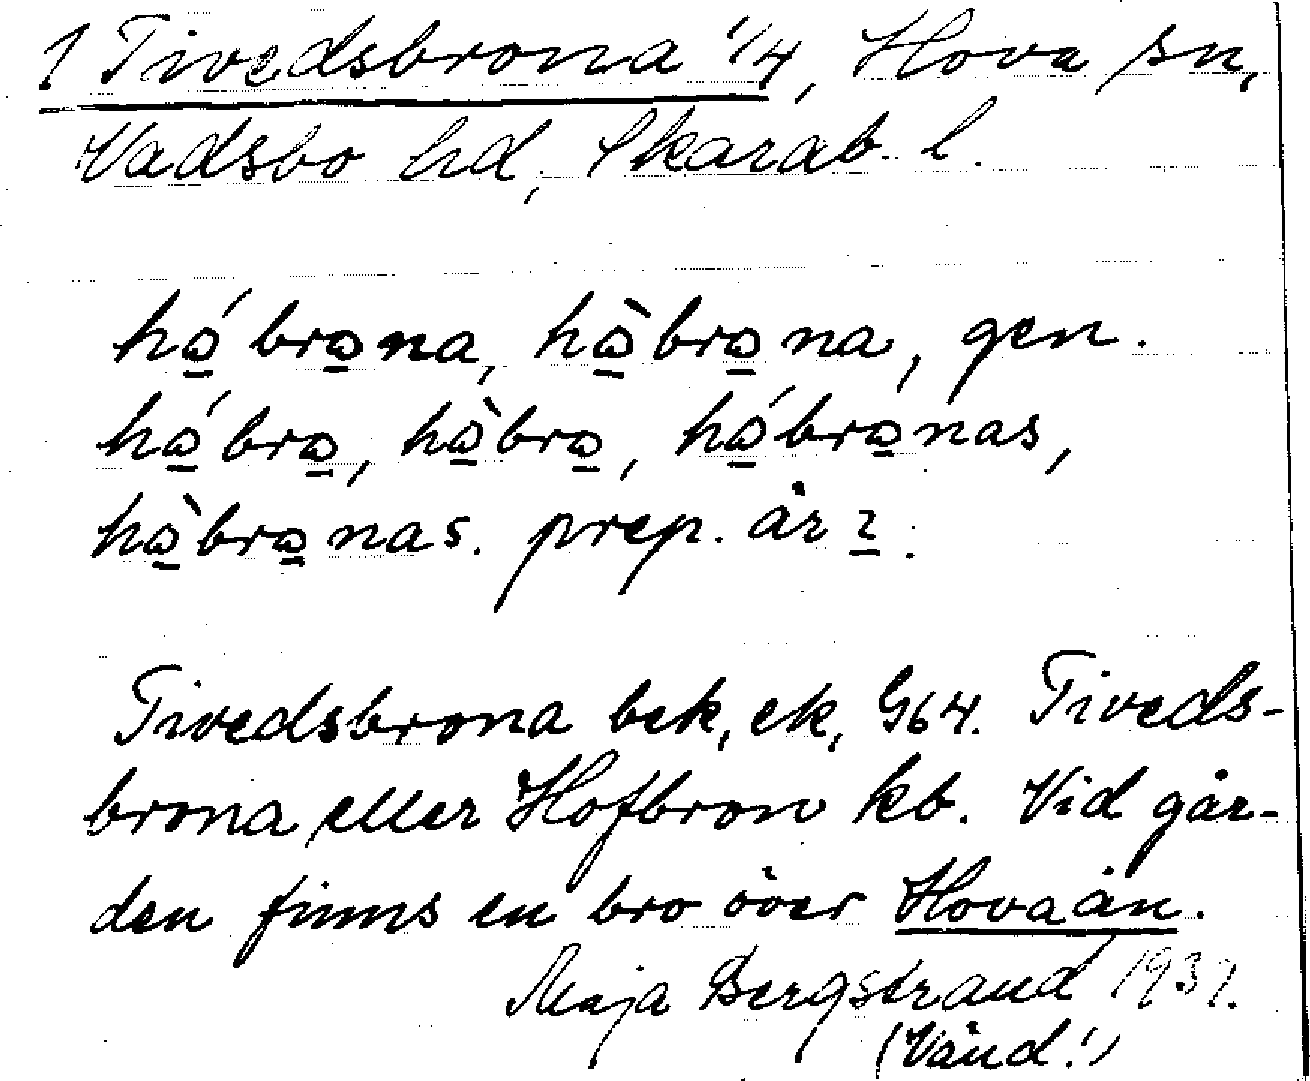 1 Tivedsbrona 1/4, Hova sn,
Vadsbo hd, Skarab. l.
hó̱ bro̱na, hò̱bro̱na, gen.
hó̱bro̱, hò̱bro̱, hó̱bro̱nas,
hò̱bro̱nas. prep. är
Tivedsbrona bek, ek, G64. Tiveds-
brona eller Hofbron kb. Vid går-
den finns en bro över Hovaån.
Maja Bergstrand 1937.
(Vänd!)